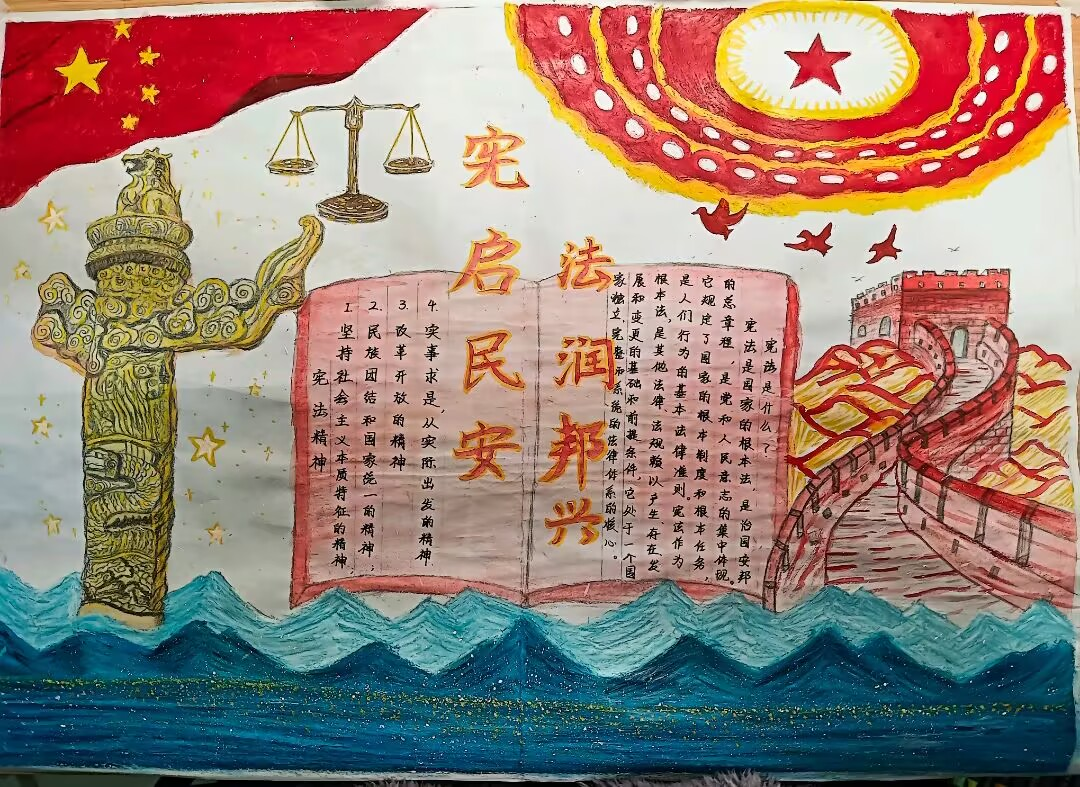 宪启民安
法润邦兴
宪法是什么?
宪法是国家的根本法,是治国安邦
的总章程,是党和人民意志的集中体现。
它规定了国家的根本制度和根本任务,
是人们行为的基本法律准则宪法作为
根本法,是其他法律、法规赖以产生、存在、发
展和变更的基础和前提条件,它处于一个国
家独立、完整而系统的法律体系的核心。
宪法精神
1. 坚持社会主义本质特征的精神
2. 民族团结和国家统一的精神;
3. 改革开放的精神
4. 实事求是,从实际出发的精神